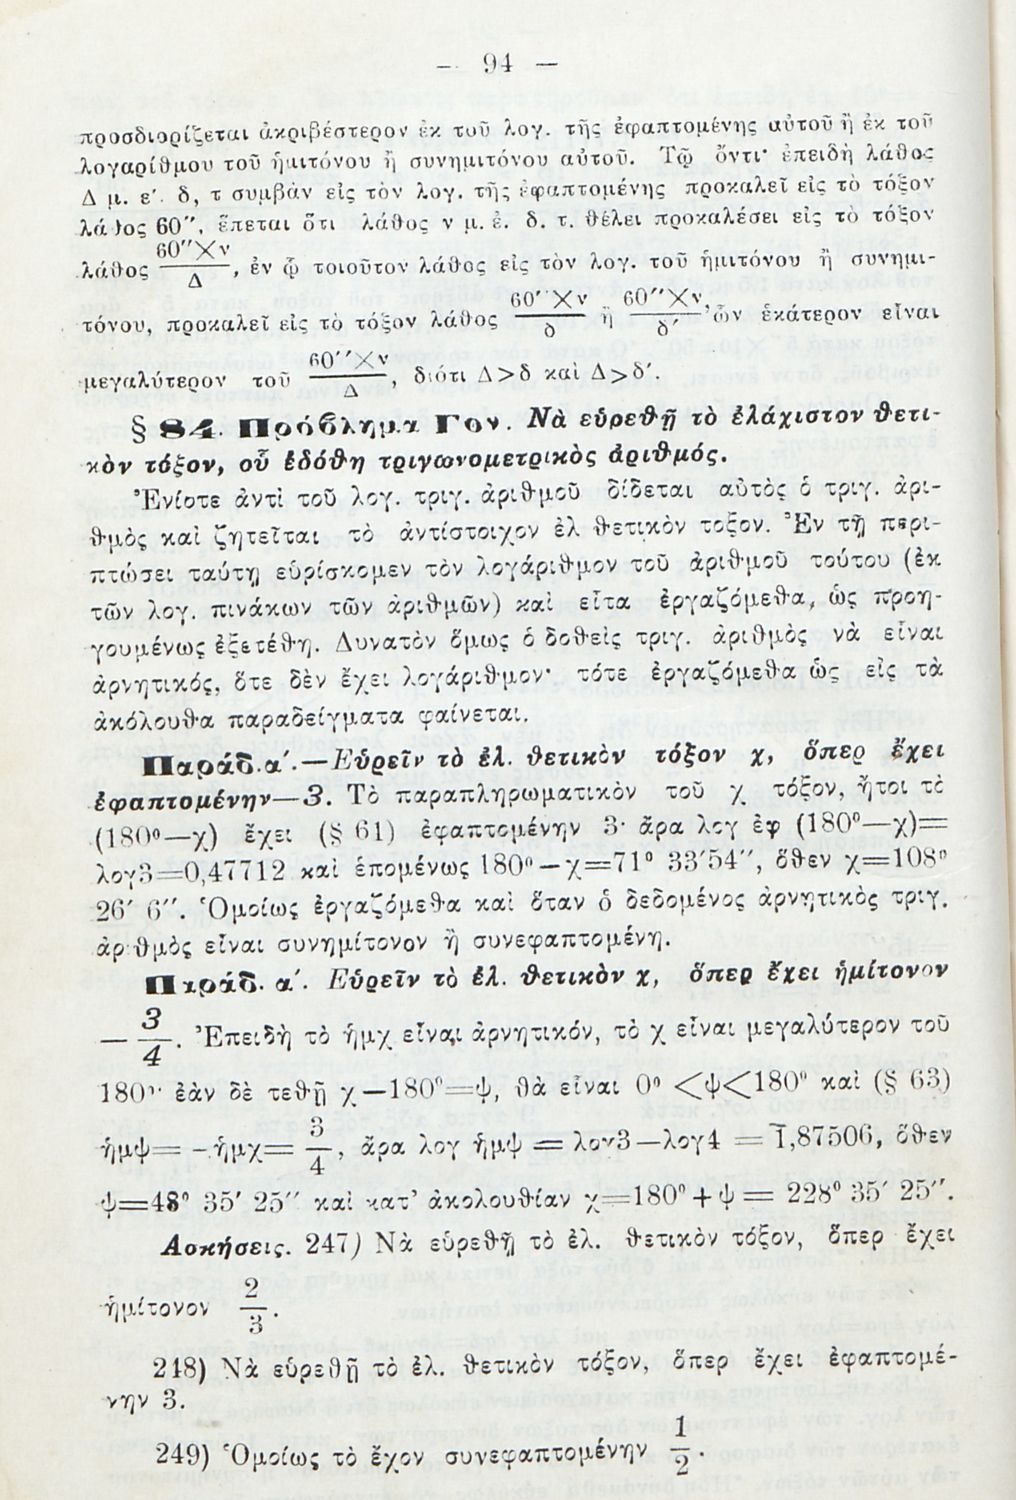 — 94 —
προσδιορίζεται ἀκριβέστερον ἐκ τοῦ λογ. τῆς ἐφαπτομένης αὐτοῦ ἢ ἐκ τοῦ
λογαρίθμου τοῦ ἡμιτόνου ἢ συνημιτόνου αὐτοῦ. Τῷ ὄντι· ἐπειδὴ λάθος
Δ μ. ε΄. δ, τ συμβὰν εἰς τὸν λογ. τῆς ἐφαπτομένης προκαλεῖ εἰς τὸ τόξον
λάθος 60″, ἕπεται ὅτι λάθος ν μ. ἑ. δ. τ. θέλει προκαλέσει εἰς τὸ τόξον
λάθος 60″×ν/Δ, ἐν ᾧ τοιοῦτον λάθος εἰς τὸν λογ. τοῦ ἡμιτόνου ἢ συνημι-
τόνου, προκαλεῖ εἰς τὸ τόξον λάθος 60″×ν/δ ἢ 60″×ν/δ′, ὧν ἑκάτερον εἶναι
μεγαλύτερον τοῦ 60″×ν/Δ, διότι Δ>δ καὶ Δ>δ′.
§ 84. Πρόβλημα Γον. Νὰ εὑρεθῇ τὸ ἐλάχιστον θετι-
κὸν τόξον, οὗ ἐδόθη τριγωνομετρικὸς ἀριθμός.
Ἐνίοτε ἀντὶ τοῦ λογ. τριγ. ἀριθμοῦ δίδεται αὐτὸς ὁ τριγ. ἀρι-
θμὸς καὶ ζητεῖται τὸ ἀντίστοιχον ἐλ θετικὸν τοξον. Ἐν τῇ περι-
πτώσει ταύτῃ εὑρίσκομεν τὸν λογάριθμον τοῦ ἀριθμοῦ τούτου (ἐκ
τῶν λογ. πινάκων τῶν ἀριθμῶν) καὶ εἶτα ἐργαζόμεθα, ὡς προη-
γουμένως ἐξετέθη. Δυνατὸν ὅμως ὁ δοθεὶς τριγ. ἀριθμὸς νὰ εἶναι
ἀρνητικός, ὅτε δὲν ἔχει λογάριθμον· τότε ἐργαζόμεθα ὡς εἰς τὰ
ἀκόλουθα παραδείγματα φαίνεται.
Παράδ. α΄.—Εὑρεῖν τὸ ἐλ. θετικὸν τόξον χ, ὅπερ ἔχει
ἐφαπτομένην—3. Τὸ παραπληρωματικὸν τοῦ χ τόξον, ἤτοι τὸ
(180⁰—χ) ἔχει (§ 61) ἐφαπτομένην 3· ἄρα λογ ἐφ (180⁰—χ)=
λογ3=0,47712 καὶ ἑπομένως 180⁰—χ=71⁰ 33′54″, ὅθεν χ=108⁰
26′ 6″. Ὁμοίως ἐργαζόμεθα καὶ ὅταν ὁ δεδομένος ἀρνητικὸς τριγ.
ἀριθμὸς εἶναι συνημίτονον ἢ συνεφαπτομένη.
Παράδ. α΄. Εὑρεῖν τὸ ἐλ. θετικὸν χ, ὅπερ ἔχει ἡμίτονον
— 3/4. Ἐπειδὴ τὸ ἡμχ εἶναι ἀρνητικόν, τὸ χ εἶναι μεγαλύτερον τοῦ
180⁰· ἐὰν δὲ τεθῇ χ—180⁰=ψ, θὰ εἶναι 0⁰ <ψ<180⁰ καὶ (§ 63)
ἡμψ= -ἡμχ= 3/4, ἄρα λογ ἡμψ = λογ3—λογ4 = 1̅,87506, ὅθεν
ψ=48⁰ 35′ 25″ καὶ κατ’ ἀκολουθίαν χ=180⁰+ψ= 228⁰ 35′ 25″.
Ασκήσεις. 247) Νὰ εὑρεθῇ τὸ ἐλ. θετικὸν τόξον, ὅπερ ἔχει
ἡμίτονον 2/3.
248) Νὰ εὑρεθῇ τὸ ἐλ. θετικὸν τόξον, ὅπερ ἔχει ἐφαπτομέ-
νην 3.
249) Ὁμοίως τὸ ἔχον συνεφαπτομένην 1/2.